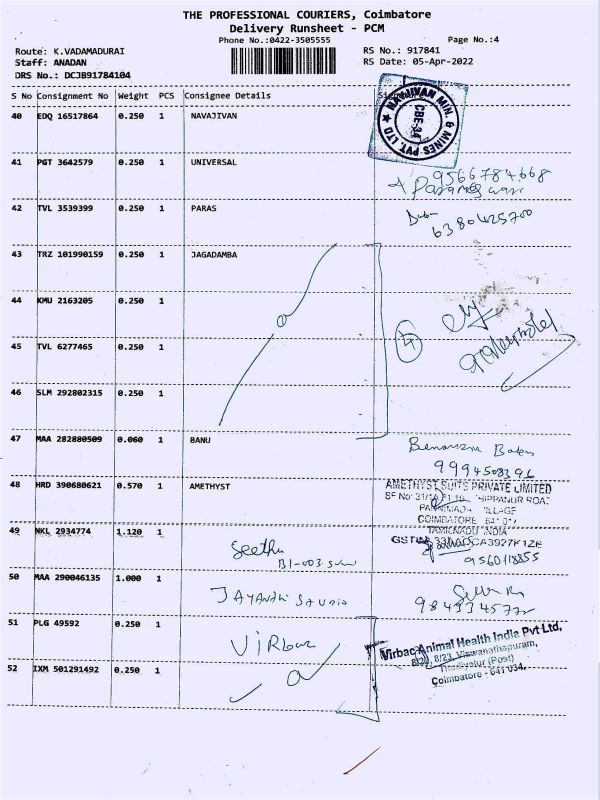 THE PROFESSIONAL COURIERS, Coimbatore
Delivery Runsheet - PCM
Phone No.:0422-3505555 Page No.:4
Route: K.VADAMADURAI RS No.: 917841
Staff: ANADAN RS Date: 05-Apr-2022
DRS No.: DCJB91784104
S No Consignment No Weight PCS Consignee Details
40 EDQ 16517864 0.250 1 NAVAJIVAN
NAVJIVAN MIN. & MINES PVT. LTD
CBE-34
41 PGT 3642579 0.250 1 UNIVERSAL
9566784668
42 TVL 3539399 0.250 1 PARAS
6380425700
43 TRZ 101990159 0.250 1 JAGADAMBA
44 KMU 2163205 0.250 1
4
45 TVL 6277465 0.250 1
46 SLM 292802315 0.250 1
47 MAA 282880509 0.060 1 BANU
9994508396
48 HRD 390680621 0.570 1 AMETHYST
AMETHYST SUITS PRIVATE LIMITED
COIMBATORE
TAMILNADU INDIA
49 NKL 2934774 1.120 1 Seethu
9560118855
50 MAA 290046135 1.000 1
JAYANDHI STUDIO
51 PLG 49592 0.250 1
Virbac
Virbac Animal Health India Pvt Ltd,
8/22, 8/23, Viswanathapuram,
(Post)
Coimbatore - 641 034.
52 IXM 501291492 0.250 1